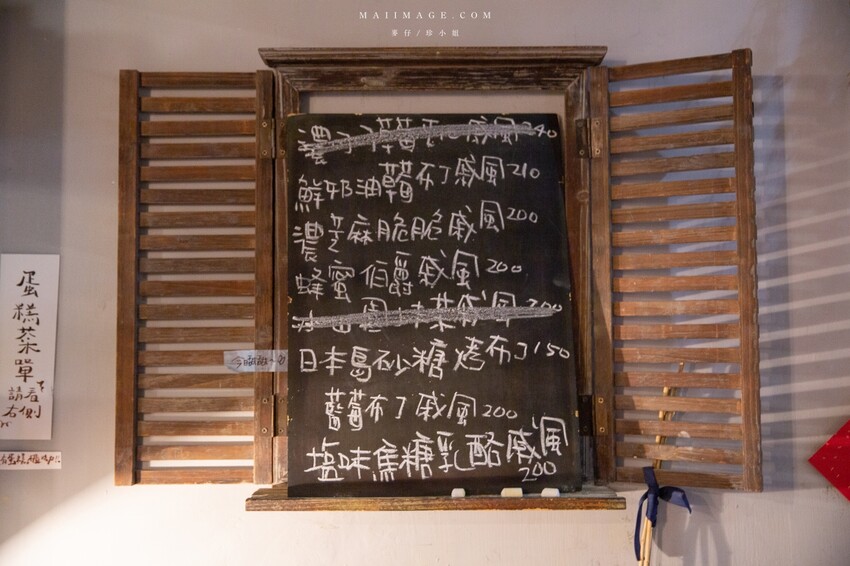 MAIIMAGE.COM
麥仔/珍小姐
濃 草莓 威風 240
鮮奶油草莓布丁威風 210
濃芝麻脆脆威風 200
蜂蜜伯爵威風 200
茶威風 200
日本島砂糖烤布丁 150
藍莓布丁威風 200
塩味焦糖乳酪威風
200
蛋糕菜單
請看
右側